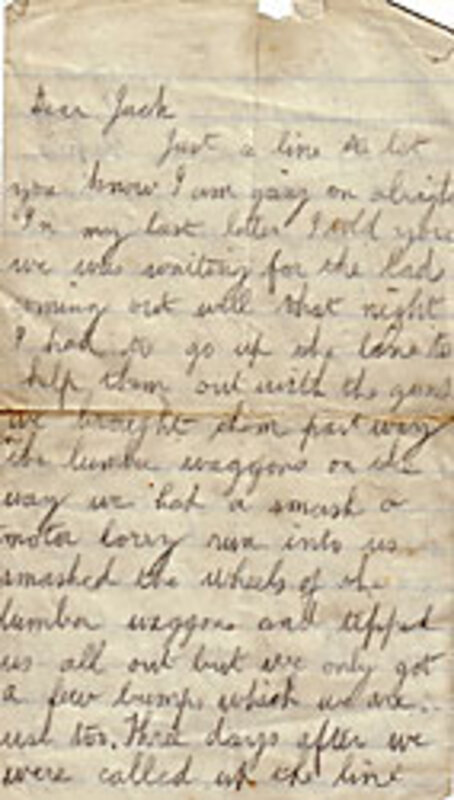 Dear Jack
Just a line to let
you know I am going on alright
In my last letter I told you
we was waiting for the lads
coming out well that night
I had to go up the line to
help them out with the guns
we brought them part way
the lumber waggons on the
way we had a smash a
motor lorry run into us
smashed the wheels of the
lumber waggons and tipped
us all out but we only got
a few bumps which we are
ust too. Three days after we
were called up the line